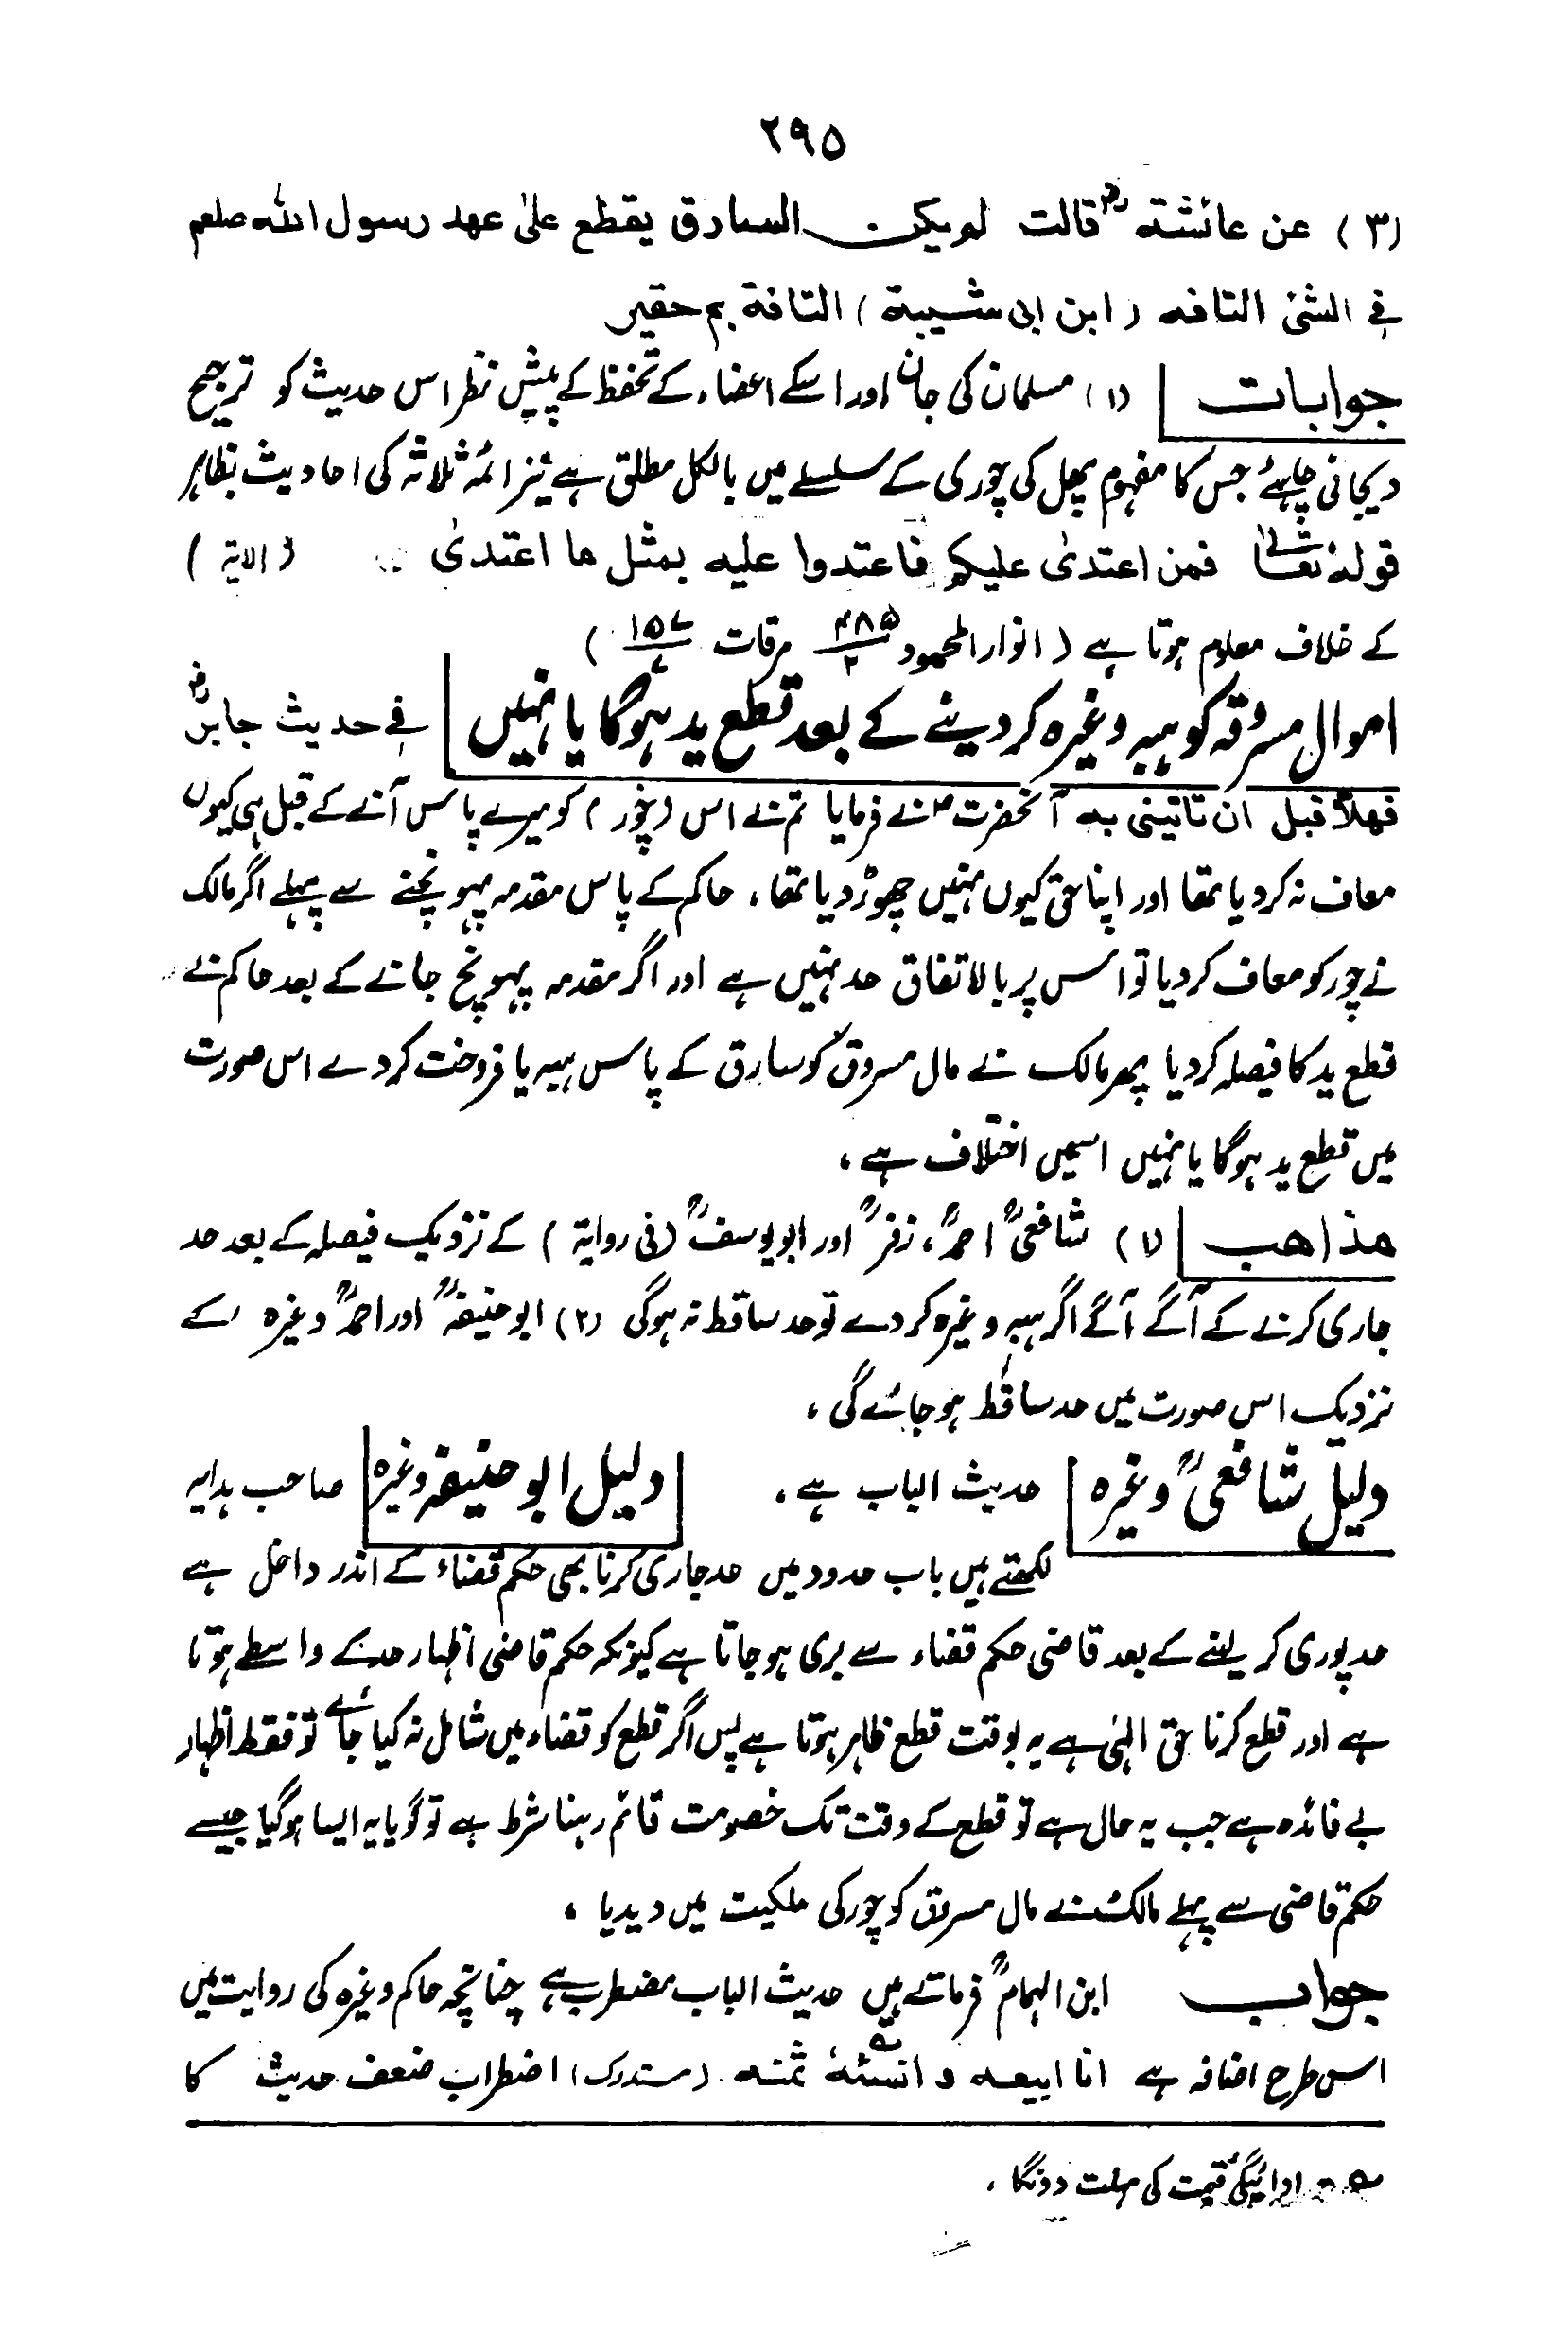 ۲۹۵
(۳) عن عائشة رض قالت لم یکن السارق یقطع علیٰ عہد رسول اللہ صلعم
فی الشئ التافه (ابن ابی شیبة) التافة بم حقیر
جوابات (۱) مسلمان کی جان اور اسکے اعضاء کے تحفظ کے پیش نظر اس حدیث کو ترجیح
دیجانی چاہئے جس کا مفہوم پھل کی چوری کے سلسلے میں بالکل مطلق ہے نیز ائمہ ثلاثہ کی احادیث بظاہر
قولہٗ تعالیٰ فمن اعتدیٰ علیکم فاعتدوا علیه بمثل ما اعتدیٰ (الایة)
کے خلاف معلوم ہوتا ہے (انوار المحمود ۴۸۵/۲ مرقات ۱۵۷/۷)
اموال مسروقہ کو ہبہ وغیرہ کردینے کے بعد قطع ید ہوگا یا نہیں فی حدیث جابر رض
فهلا قبل ان تاتینی به آنحضرت ؐ نے فرمایا تم نے اس (چور) کو میرے پاس آنے کے قبل ہی کیوں
معاف نہ کردیا تھا اور اپنا حق کیوں نہیں چھوڑ دیا تھا، حاکم کے پاس مقدمہ پہونچنے سے پہلے اگر مالک
نے چور کو معاف کردیا تو اس پر بالاتفاق حد نہیں ہے اور اگر مقدمہ پہونچ جانے کے بعد حاکم نے
قطع ید کا فیصلہ کردیا پھر مالک نے مال مسروق کو سارق کے پاس ہبہ یا فروخت کردے اس صورت
میں قطع ید ہوگا یا نہیں اسمیں اختلاف ہے،
مذاهب (۱) شافعیؒ احمدؒ، زفرؒ اور ابویوسفؒ (فی روایة) کے نزدیک فیصلہ کے بعد حد
جاری کرنے کے آگے آگے اگر ہبہ وغیرہ کردے تو حد ساقط نہ ہوگی (۲) ابو حنیفہؒ اور احمدؒ وغیرہ کے
نزدیک اس صورت میں حد ساقط ہو جائے گی،
دلیل شافعیؒ وغیرہ حدیث الباب ہے، دلیل ابو حنیفہ وغیرہ صاحب ہدایہ
لکھتے ہیں باب حدود میں حد جاری کرنا بھی حکم قضاء کے اندر داخل ہے
حد پوری کر لینے کے بعد قاضی حکم قضاء سے بری ہوجاتا ہے کیونکہ حکم قاضی اظہار حد کے واسطے ہوتا
ہے اور قطع کرنا حق الہٰی ہے یہ بوقت قطع ظاہر ہوتا ہے پس اگر قطع کو قضاء میں شامل نہ کیا جائے تو فقط اظہار
بے فائدہ ہے جب یہ حال ہے تو قطع کے وقت تک خصومت قائم رہنا شرط ہے تو گویا یہ ایسا ہوگیا جیسے
حکم قاضی سے پہلے مالک نے مال مسروق کو چور کی ملکیت میں دیدیا،
جواب ابن الہمامؒ فرماتے ہیں حدیث الباب مضطرب ہے چنانچہ حاکم وغیرہ کی روایت میں
اس طرح اضافہ ہے انا ابیعه و انسئهٗ ثمنه (مستدرک) اضطراب ضعف حدیث کا
ادائیگی قیمت کی مہلت دونگا،